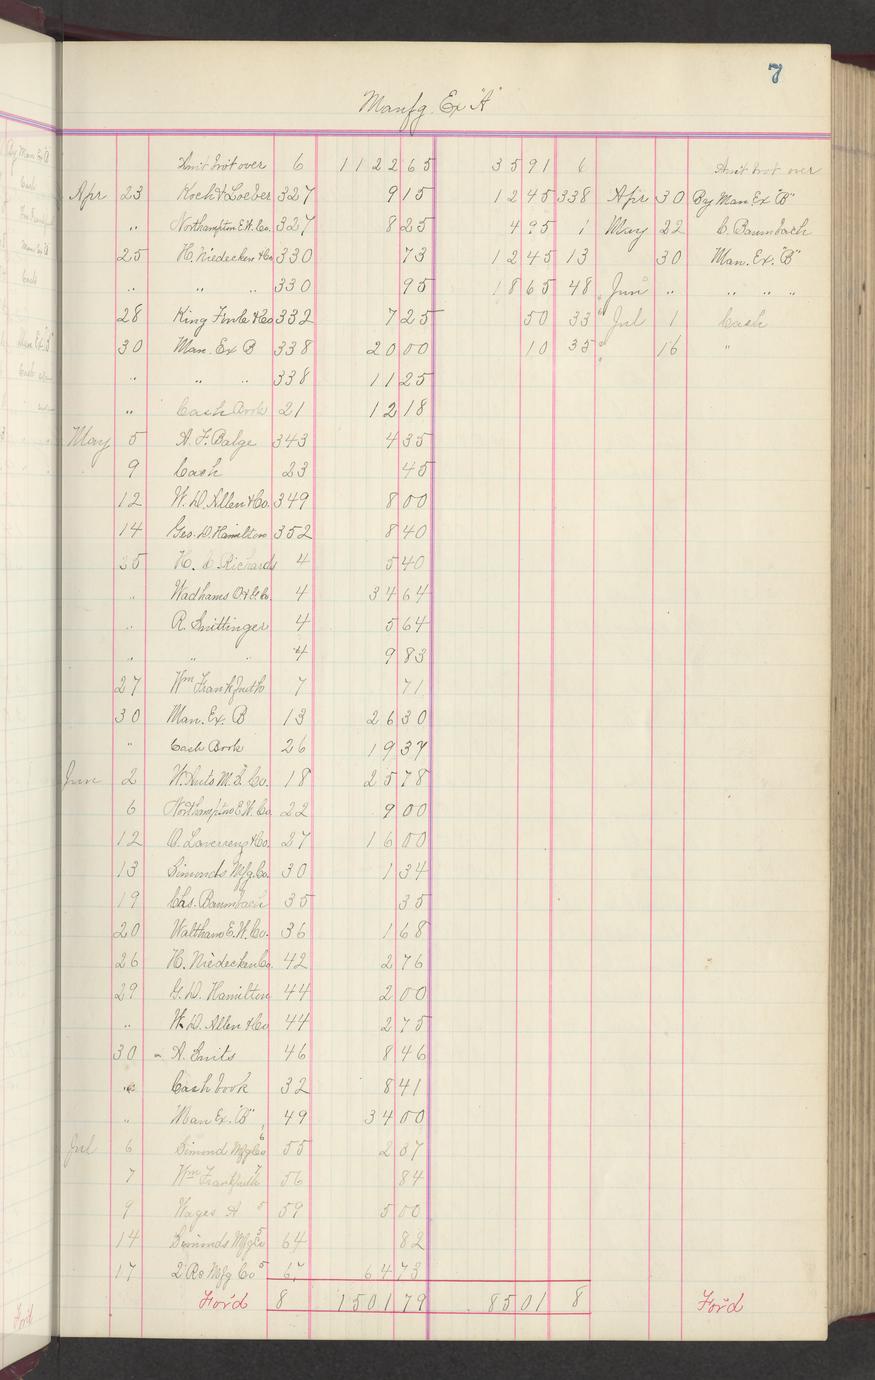 7
Manfg. Ex "A"
Amt brot over 6 1122 65 35 91 6 Amt brot over
Apr 23 Koch & Loeber 327 9 15 12 45 338 Apr 30 By Man Ex "B"
" Northampton E.W. Co. 327 8 25 4 95 1 May 22 C. Baumbach
25 H. Niedecken & Co 330 73 12 45 13 30 Man. Ex. "B"
" " " 330 95 18 65 48 Jun " " " "
28 King Fowle & Co 332 7 25 50 33 Jul 1 Cash
30 Man. Ex B 338 20 00 10 35 16 "
" " " 338 11 25
" Cash Book 21 12 18
May 5 A. F. Balge 343 4 35
9 Cash 23 45
12 W. D. Allen & Co. 349 8 00
14 Geo. D. Hamilton 352 8 40
25 H. C. Richards 4 5 40
" Wadhams O & G Co. 4 34 64
" R. Smittinger 4 5 64
" " " 4 9 83
27 Wm Frankfurth 7 71
30 Man. Ex. B 13 26 30
" Cash Book 26 19 37
Jun 2 W. M. Co. 18 25 78
6 Northampton E.W. Co. 22 9 00
12 O. & Co. 27 16 00
13 Simonds Mfg. Co. 30 1 34
19 Chs. Baumbach 35 35
20 Waltham E.W. Co. 36 1 68
26 H. Niedecken Co. 42 2 76
29 G. D. Hamilton 44 2 00
" W. D. Allen & Co 44 2 75
30 A. Smits 46 8 46
" Cash book 32 8 41
" Man Ex. "B" 49 34 00
Jul 6 Simond Mfg Co 6 55 2 37
7 Wm Frankfurth 7 56 84
9 Wages A 5 59 5 00
14 Simonds Mfg Co 5 64 82
17 Mfg Co 5 67 64 73
Ford 8 1501 79 85 01 8 Ford